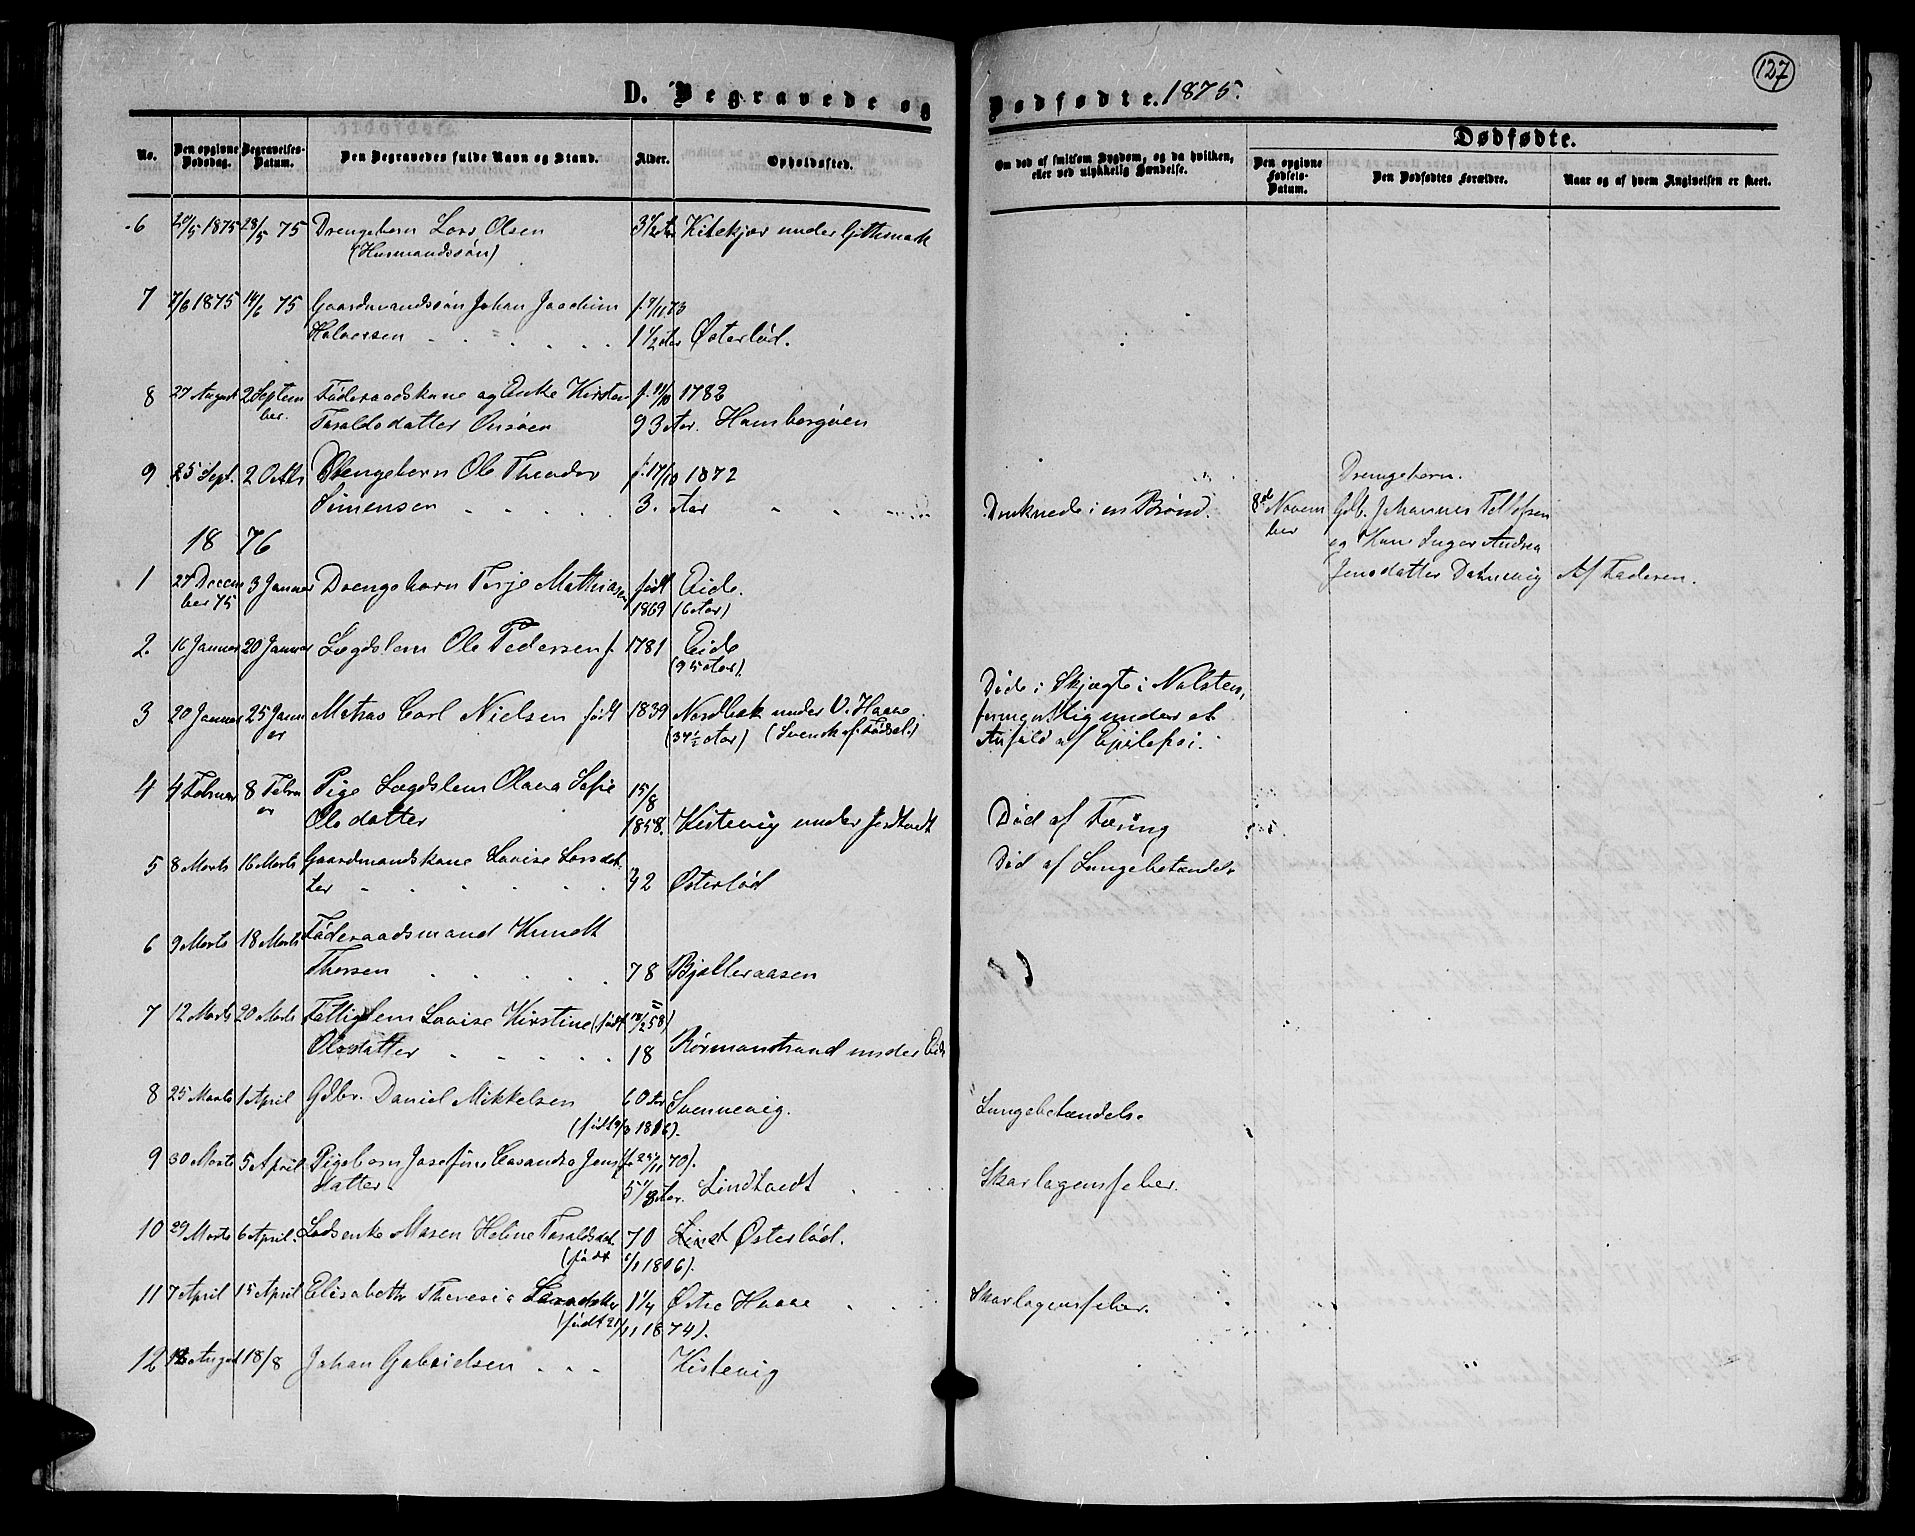 127
D. Begravede og Dødfødte. 1875.
Dødfødte.
No.
Den opgivne Dødsdag.
Begravelses-Datum.
Den Begravedes fulde Navn og Stand.
Alder.
Opholdssted.
Om død af smitsom Sygdom, og da hvilken,
eller ved ulykkelig Hændelse.
Den opgivne Fødsels-Datum.
Den Dødfødtes Forældre.
Naar og af hvem Angivelsen er skeet.
6 20/5 1875 28/5 75 Drengebarn Lars Olsen 3 1/2 Aar under
(Husmandssøn)
7 7/6 1875 14/6 75 Gaardmandssøn Johan Joachim f. 7/11 73
Halvorsen 1 1/2 Aar Østerlød.
8 27 August 2 Septem Føderaadskone og Enke Kirsten 1782
ber.
Taraldsdatter 93 Aar.
9 25 Sept. 2 Octbr Drengebarn Ole Theodor f. 17/10 1872
Drengebarn.
Simensen 3. Aar Druknede i en Brønd. 8de Novem Gdb. Johannes Tellefsen
ber og Kone Inger Andrea
18 76
Jensdatter Af Faderen.
1 27 Decem 3 Januar Drengebarn Terje Mathiasen født Eide.
ber 75 1869 (6 Aar)
2. 16 Januar 20 Januar Lægdslem Ole Pedersen f. 1781 Eide
(95 Aar).
3 20 Januar 25 Janu Matros Carl Nielsen født 1839 Nordbæk under V. Haave
ar (37 1/2 Aar) (Svensk af Fødsel.)
Døde i Skjægte i
under et
Anfald af Epilepsi.
4 4 Februar 8 Febru Pige Lægdslem Olava Sofie 15/8
ar Olsdatter 1858. Kistevig under Død af Tæring
5 8 Marts 16 Marts Gaardmandskone Lovise Larsdat Død af Lungebetændelse
ter 42 Østerlød
6 9 Marts 18 Marts Føderaadsmand Knudt
Thorsen 78 Bjelleraasen
7 12 Marts 20 Marts Fattiglem Lovise Kirstine (født 18/2 58)
Olsdatter 18 under Eide
8 25 Marts 1 April Gdbr. Daniel Mikkelsen 60 Aar Svennevig. Lungebetændelse
(født 1816).
9 30 Marts 5 April Pigebarn Josefine Casandra Jens 70).
datter 5 1/3 Aar. Lindtvedt Skarlagensfeber.
10 29 Marts 6 April. Lodsenke Maren Helene Taraldsdat. 70 Østerlød.
(født 1806).
11 7 April 15 April Elisabeth Theresia 1 1/4 Østre Haave Skarlagensfeber.
(født 21/11 1874).
12 August 18/8 Johan Gabrielsen Kistevig